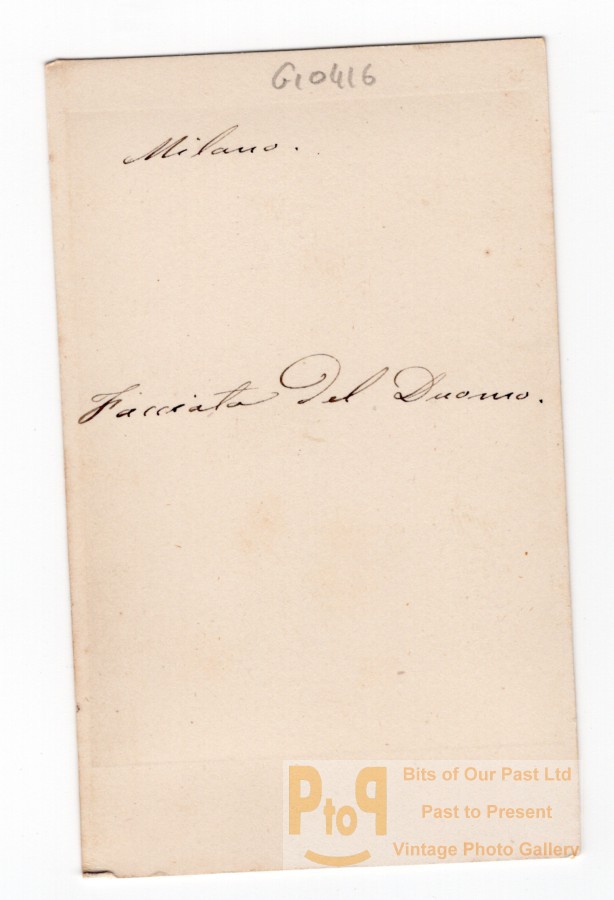 G10416
Milano.
Facciata del Duomo.
PtoP
Bits of Our Past Ltd
Past to Present
Vintage Photo Gallery